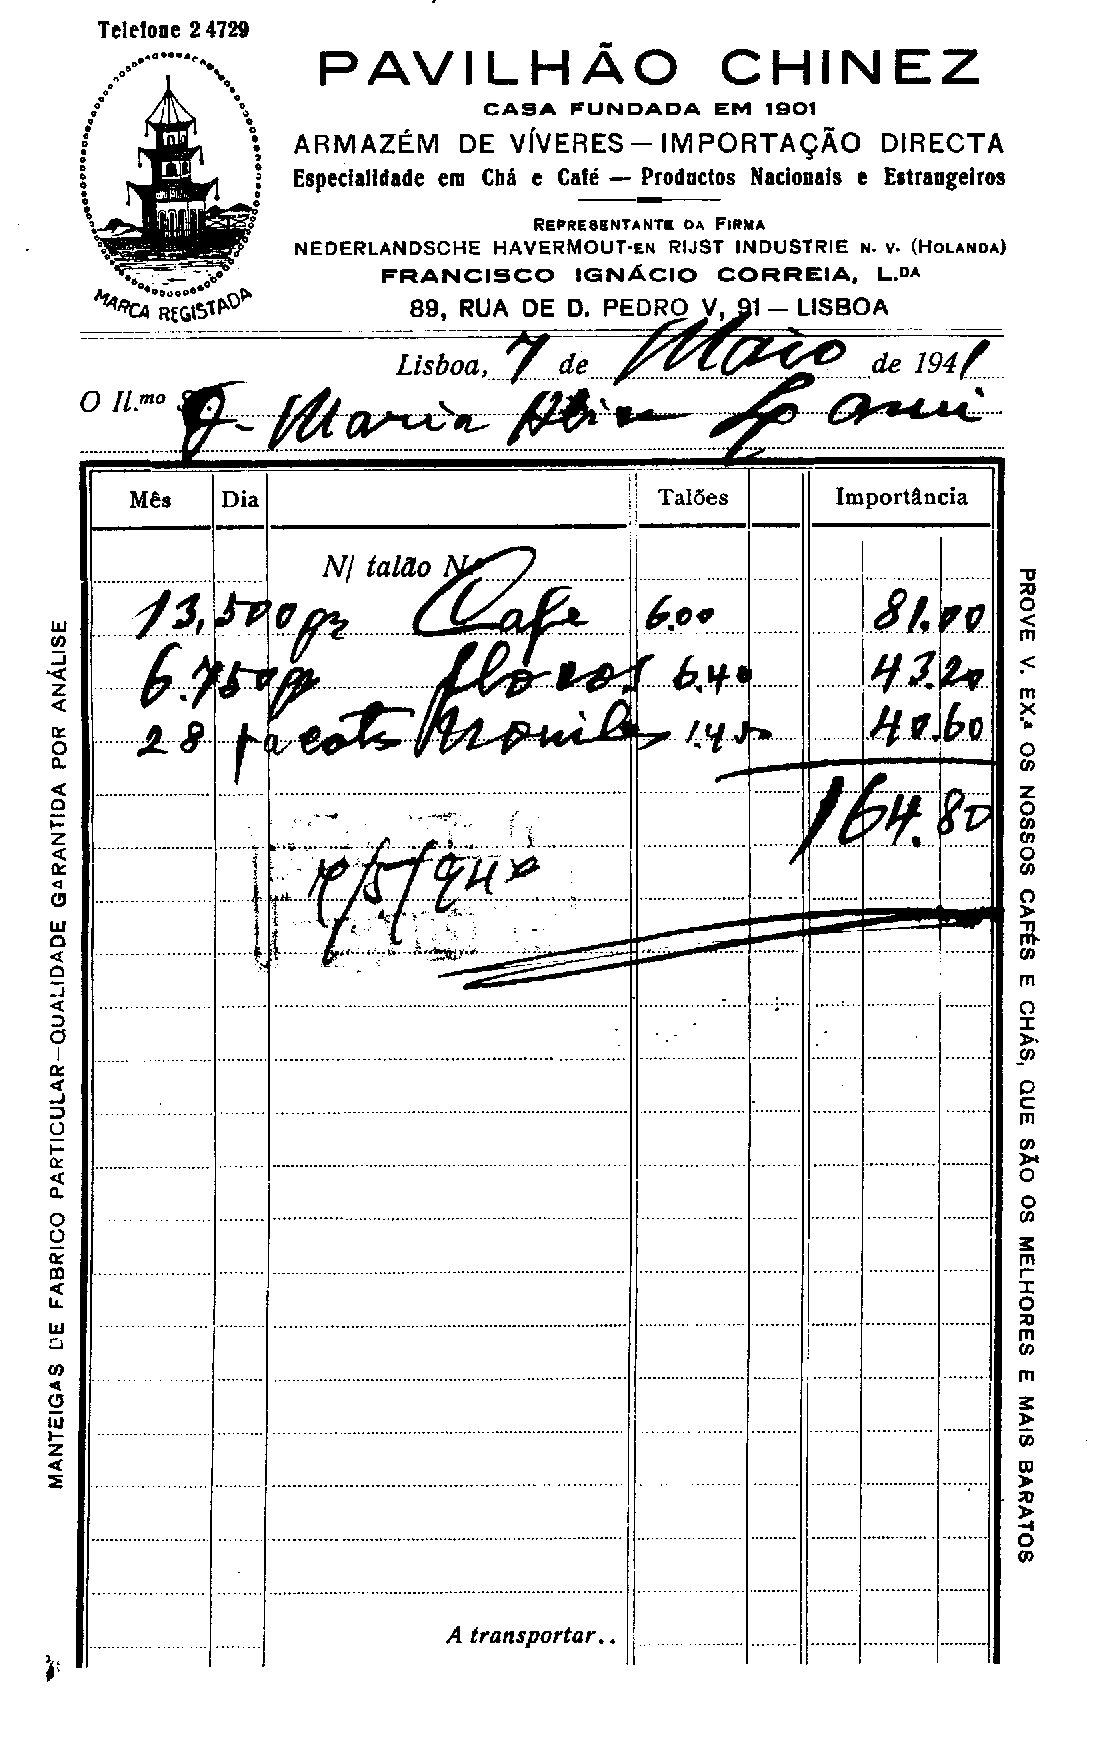 Telefone 2 4729
PAVILHÃO CHINEZ
CASA FUNDADA EM 1901
ARMAZÉM DE VÍVERES — IMPORTAÇÃO DIRECTA
Especialidade em Chá e Café — Productos Nacionais e Estrangeiros
REPRESENTANTE DA FIRMA
NEDERLANDSCHE HAVERMOUT-EN RIJST INDUSTRIE N. V. (HOLANDA)
FRANCISCO IGNÁCIO CORREIA, L.DA
89, RUA DE D. PEDRO V, 91 — LISBOA
MARCA REGISTADA
Lisboa, 7 de Maio de 1941
O Il.mo Maria
Mês Dia Talões Importância
N/ talão N.
13,500 gr Cafe 6.00 81.00
6.750 gr flocos 6.40 43.20
28 pacots 1.45 40.60
164.80
A transportar..
MANTEIGAS DE FABRICO PARTICULAR—QUALIDADE GARANTIDA POR ANÁLISE
PROVE V. EX.ª OS NOSSOS CAFÉS E CHÁS, QUE SÃO OS MELHORES E MAIS BARATOS